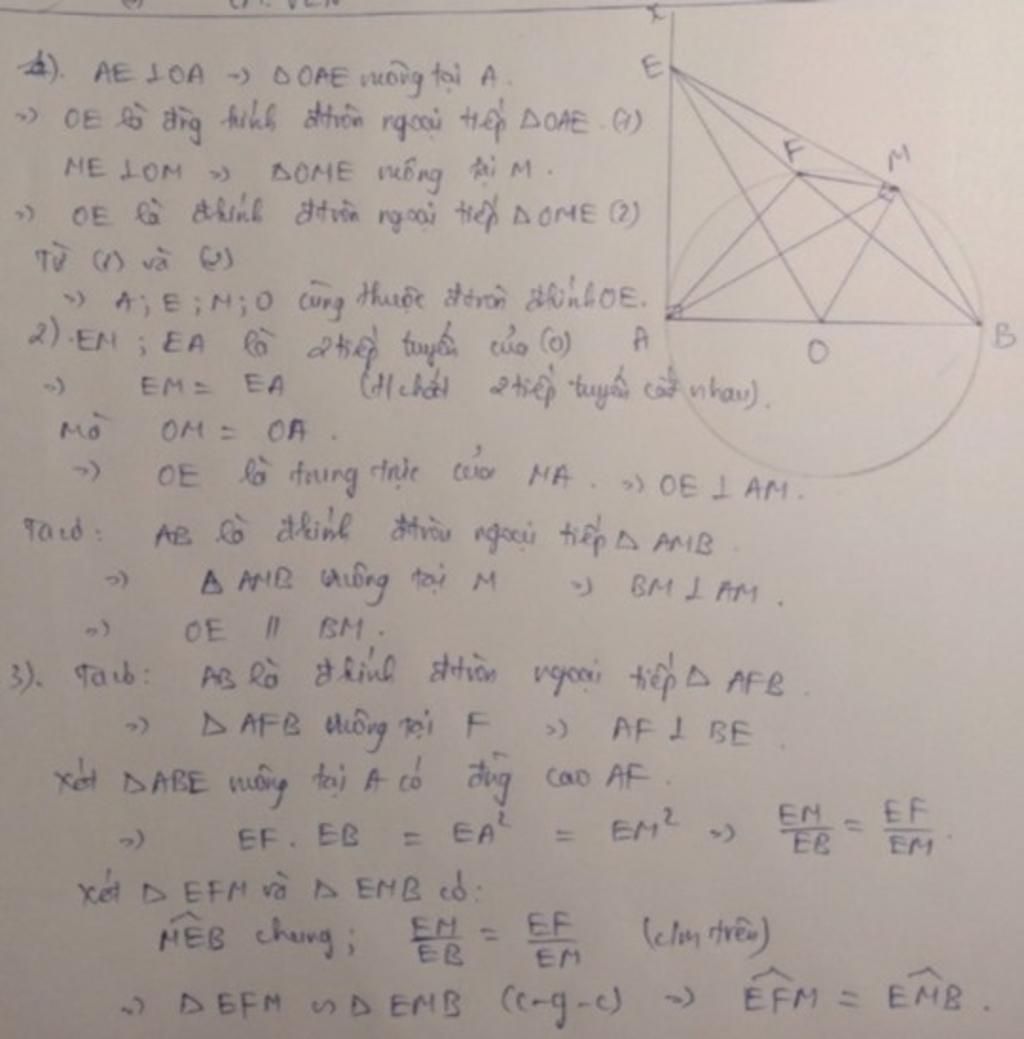 1). AE ⊥ OA => Δ OAE vuông tại A.
=> OE là đg kính đtròn ngoại tiếp Δ OAE. (1)
ME ⊥ OM => Δ OME vuông tại M.
=> OE là đkính đtròn ngoại tiếp Δ OME (2)
Từ (1) và (2)
=> A; E; M; O cùng thuộc đtròn đkính OE.
2). EM; EA là 2 tiếp tuyến của (O)
=> EM = EA (t/chất 2 tiếp tuyến cắt nhau).
Mà OM = OA.
=> OE là trung trực của MA. => OE ⊥ AM.
Ta có: AB là đkính đtròn ngoại tiếp Δ AMB.
=> Δ AMB vuông tại M => BM ⊥ AM.
=> OE // BM.
3). Ta có: AB là đkính đtròn ngoại tiếp Δ AFB.
=> Δ AFB vuông tại F => AF ⊥ BE.
Xét Δ ABE vuông tại A có đg cao AF.
=> EF. EB = EA² = EM² => EM/EB = EF/EM.
Xét Δ EFM và Δ EMB có:
MEB chung; EM/EB = EF/EM (cm trên)
=> Δ EFM ∽ Δ EMB (c-g-c) => EFM = EMB.
x
E
F
M
A
O
B